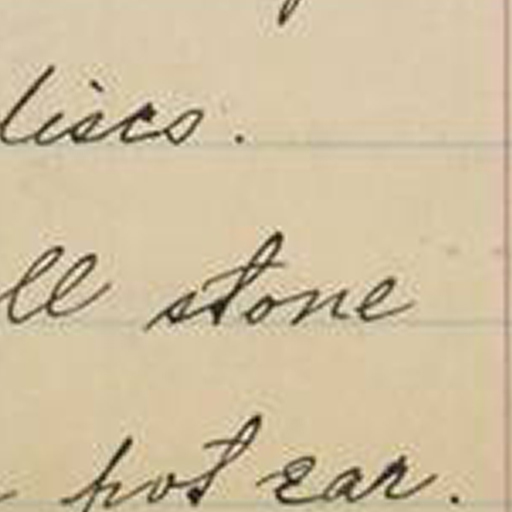 discs.
ll stone
pot ear.